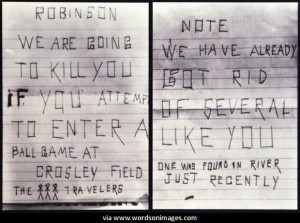 ROBINSON
WE ARE GOING
TO KILL YOU
IF YOU ATTEMPT
TO ENTER A
BALL GAME AT
CROSLEY FIELD
THE TRAVELERS
NOTE
WE HAVE ALREADY
GOT RID
OF SEVERAL
LIKE YOU
ONE WAS FOUND IN RIVER
JUST RECENTLY
via www.wordsonimages.com